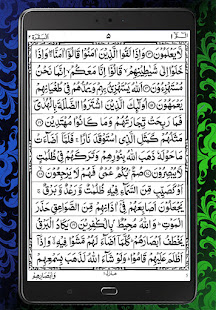 الٓمّٓ ١ ٥ البقرة ٢
لَّا يَعْلَمُوْنَ ۝ وَاِذَا لَقُوا الَّذِيْنَ اٰمَنُوْا قَالُوْٓا اٰمَنَّا ۚ وَاِذَا
خَلَوْا اِلٰى شَيٰطِيْنِهِمْ ۙ قَالُوْٓا اِنَّا مَعَكُمْ ۙ اِنَّمَا نَحْنُ
مُسْتَهْزِءُوْنَ ۝ اَللّٰهُ يَسْتَهْزِئُ بِهِمْ وَيَمُدُّهُمْ فِيْ طُغْيَانِهِمْ
يَعْمَهُوْنَ ۝ اُولٰٓئِكَ الَّذِيْنَ اشْتَرَوُا الضَّلٰلَةَ بِالْهُدٰى ۪
فَمَا رَبِحَتْ تِّجَارَتُهُمْ وَمَا كَانُوْا مُهْتَدِيْنَ ۝ مَثَلُهُمْ
كَمَثَلِ الَّذِى اسْتَوْقَدَ نَارًا ۚ فَلَمَّآ اَضَآءَتْ
مَا حَوْلَهٗ ذَهَبَ اللّٰهُ بِنُوْرِهِمْ وَتَرَكَهُمْ فِيْ ظُلُمٰتٍ
لَّا يُبْصِرُوْنَ ۝ صُمٌّۢ بُكْمٌ عُمْىٌ فَهُمْ لَا يَرْجِعُوْنَ ۝
اَوْ كَصَيِّبٍ مِّنَ السَّمَآءِ فِيْهِ ظُلُمٰتٌ وَّرَعْدٌ وَّبَرْقٌ ۚ
يَجْعَلُوْنَ اَصَابِعَهُمْ فِيْٓ اٰذَانِهِمْ مِّنَ الصَّوَاعِقِ حَذَرَ
الْمَوْتِ ؕ وَاللّٰهُ مُحِيْطٌۢ بِالْكٰفِرِيْنَ ۝ يَكَادُ الْبَرْقُ
يَخْطَفُ اَبْصَارَهُمْ ؕ كُلَّمَآ اَضَآءَ لَهُمْ مَّشَوْا فِيْهِ ۙ وَاِذَآ
اَظْلَمَ عَلَيْهِمْ قَامُوْا ؕ وَلَوْ شَآءَ اللّٰهُ لَذَهَبَ بِسَمْعِهِمْ
منزل ١
وَاَبْصَارِهِمْ